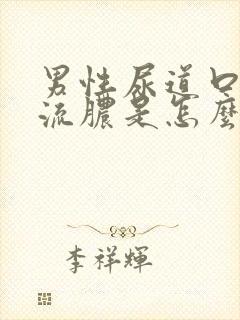 男性尿道口
流膿是怎麼
李祥輝